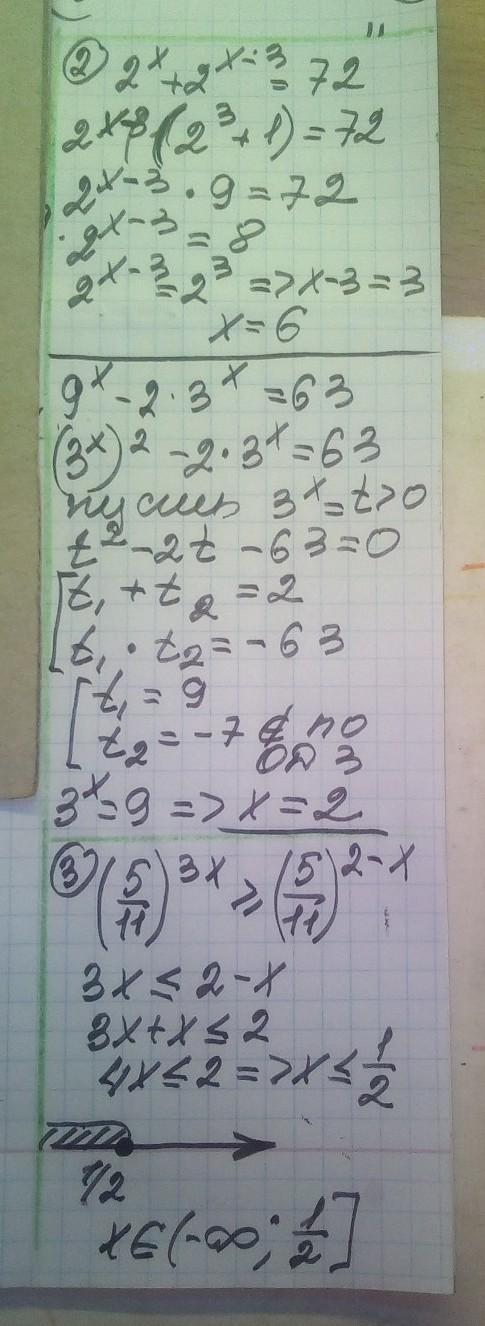 ② 2^x + 2^(x-3) = 72
2^(x-3) (2^3 + 1) = 72
2^(x-3) · 9 = 72
2^(x-3) = 8
2^(x-3) = 2^3 => x-3 = 3
x = 6
9^x - 2·3^x = 63
(3^x)^2 - 2·3^x = 63
пусть 3^x = t > 0
t^2 - 2t - 63 = 0
[ t₁ + t₂ = 2
t₁ · t₂ = -63
[ t₁ = 9
t₂ = -7 ∉ по
ОДЗ
3^x = 9 => x = 2
③ (5/11)^(3x) ≥ (5/11)^(2-x)
3x ≤ 2-x
3x+x ≤ 2
4x ≤ 2 => x ≤ 1/2
1/2
x∈(-∞; 1/2]